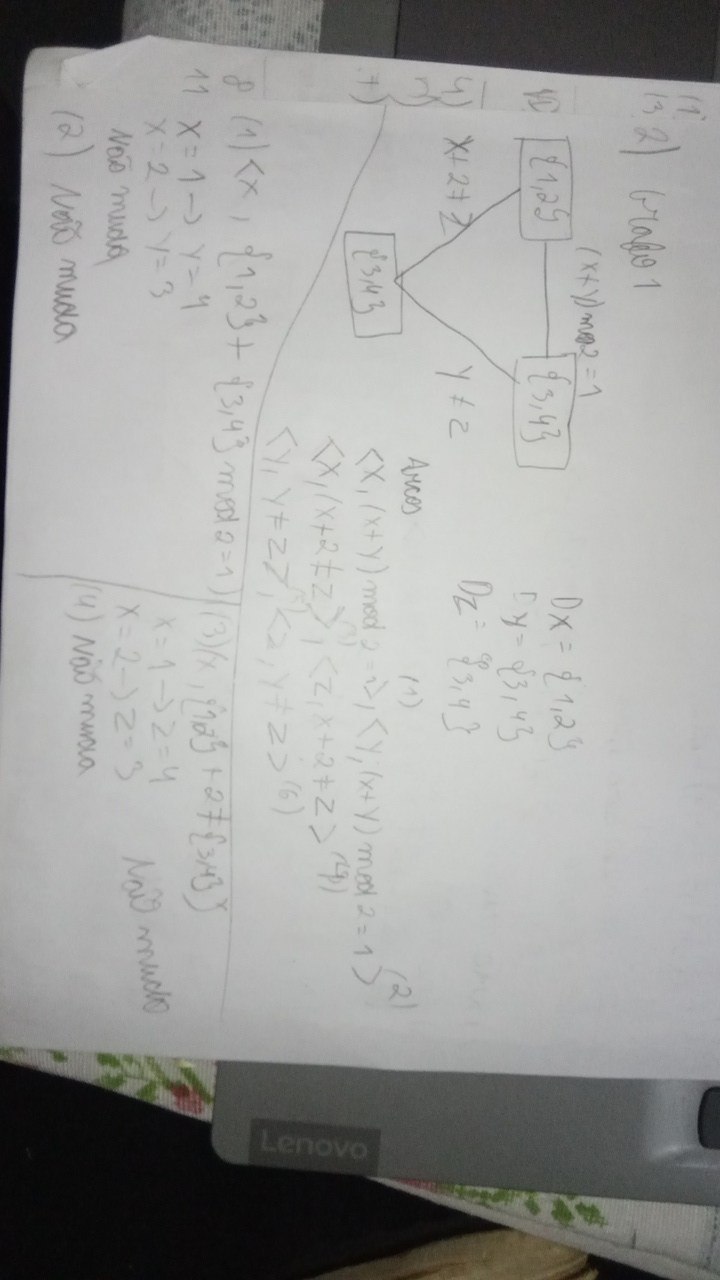 2) Grafo 1
{1,2}
(x+y) mod 2 = 1
{3,4}
x+2 ≠ z
y ≠ z
{3,4}
Dx = {1,2}
Dy = {3,4}
Dz = {3,4}
Arcos
(1) (2)
<x, (x+y) mod 2 = 1>, <y, (x+y) mod 2 = 1>
<x, (x+2 ≠ z>, (3) <z, x+2 ≠ z> (4)
<y, y ≠ z>, (5) <z, y ≠ z> (6)
(1) <x, {1,2} + {3,4} mod 2 = 1)
x = 1 → y = 4
x = 2 → y = 3
Não muda
(2) Não muda
(3) (x, {1,2} + 2 ≠ {3,4})
x = 1 → z = 4
x = 2 → z = 3
Não muda
(4) Não muda
8
11
Lenovo